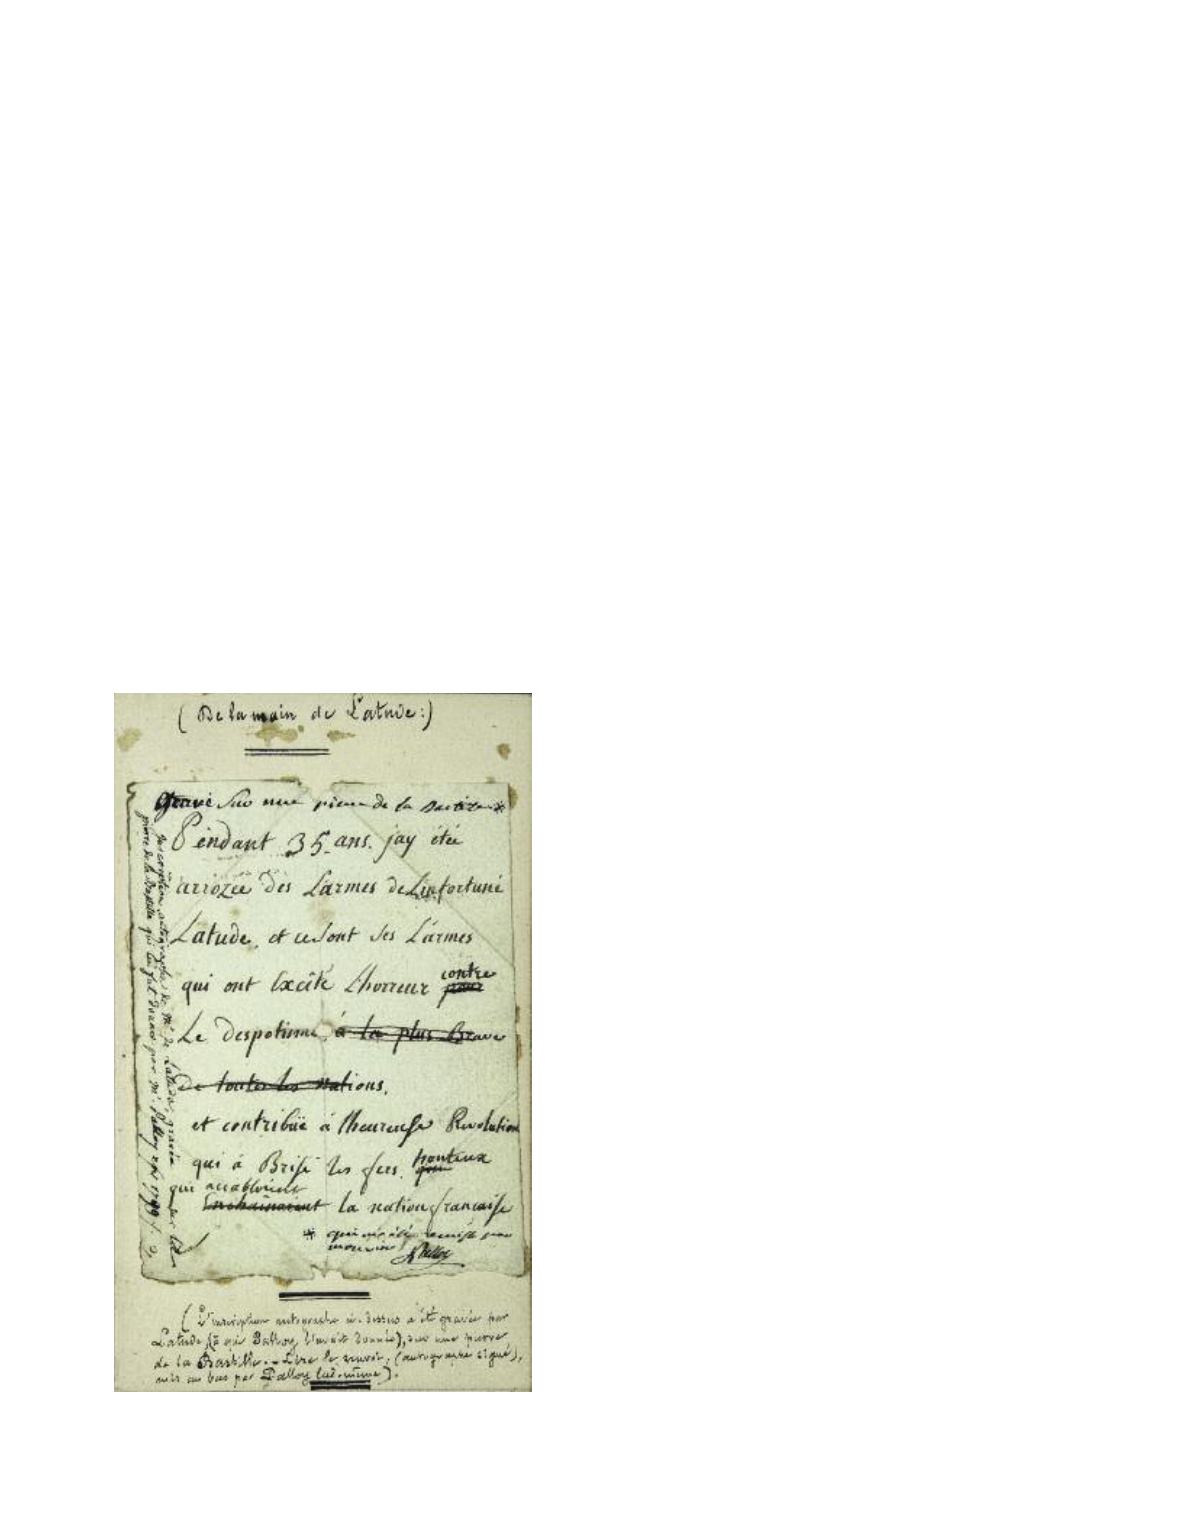 ( De la main de Latude :)
Gravé sur une pierre de la Bastille *
Pendant 35 ans. jay été
arrozée des Larmes de Linfortuné
Latude, et ce sont ses Larmes
qui ont Excité Lhorreur contre
pour
Le despotisme à la plus Brave
De toutes les nations.
et contribüé à lheureuse Revolution
qui à Brisé les fers. honteux
qui accabloient
Enchainaient la nation francaise
* qui m'a été remise pour
Palloy
inscription autographe de Mr de Latude, gravée sur
pierre de la Bastille qui lui fut donnée par Mr. Palloy
( L'inscription autographe ci-dessus a été gravée par
Latude, (à qui Palloy l'avait donnée), sur une pierre
de la Bastille. - Lire le renvoi, (autographe signé),
mis au bas par Palloy lui-même ).